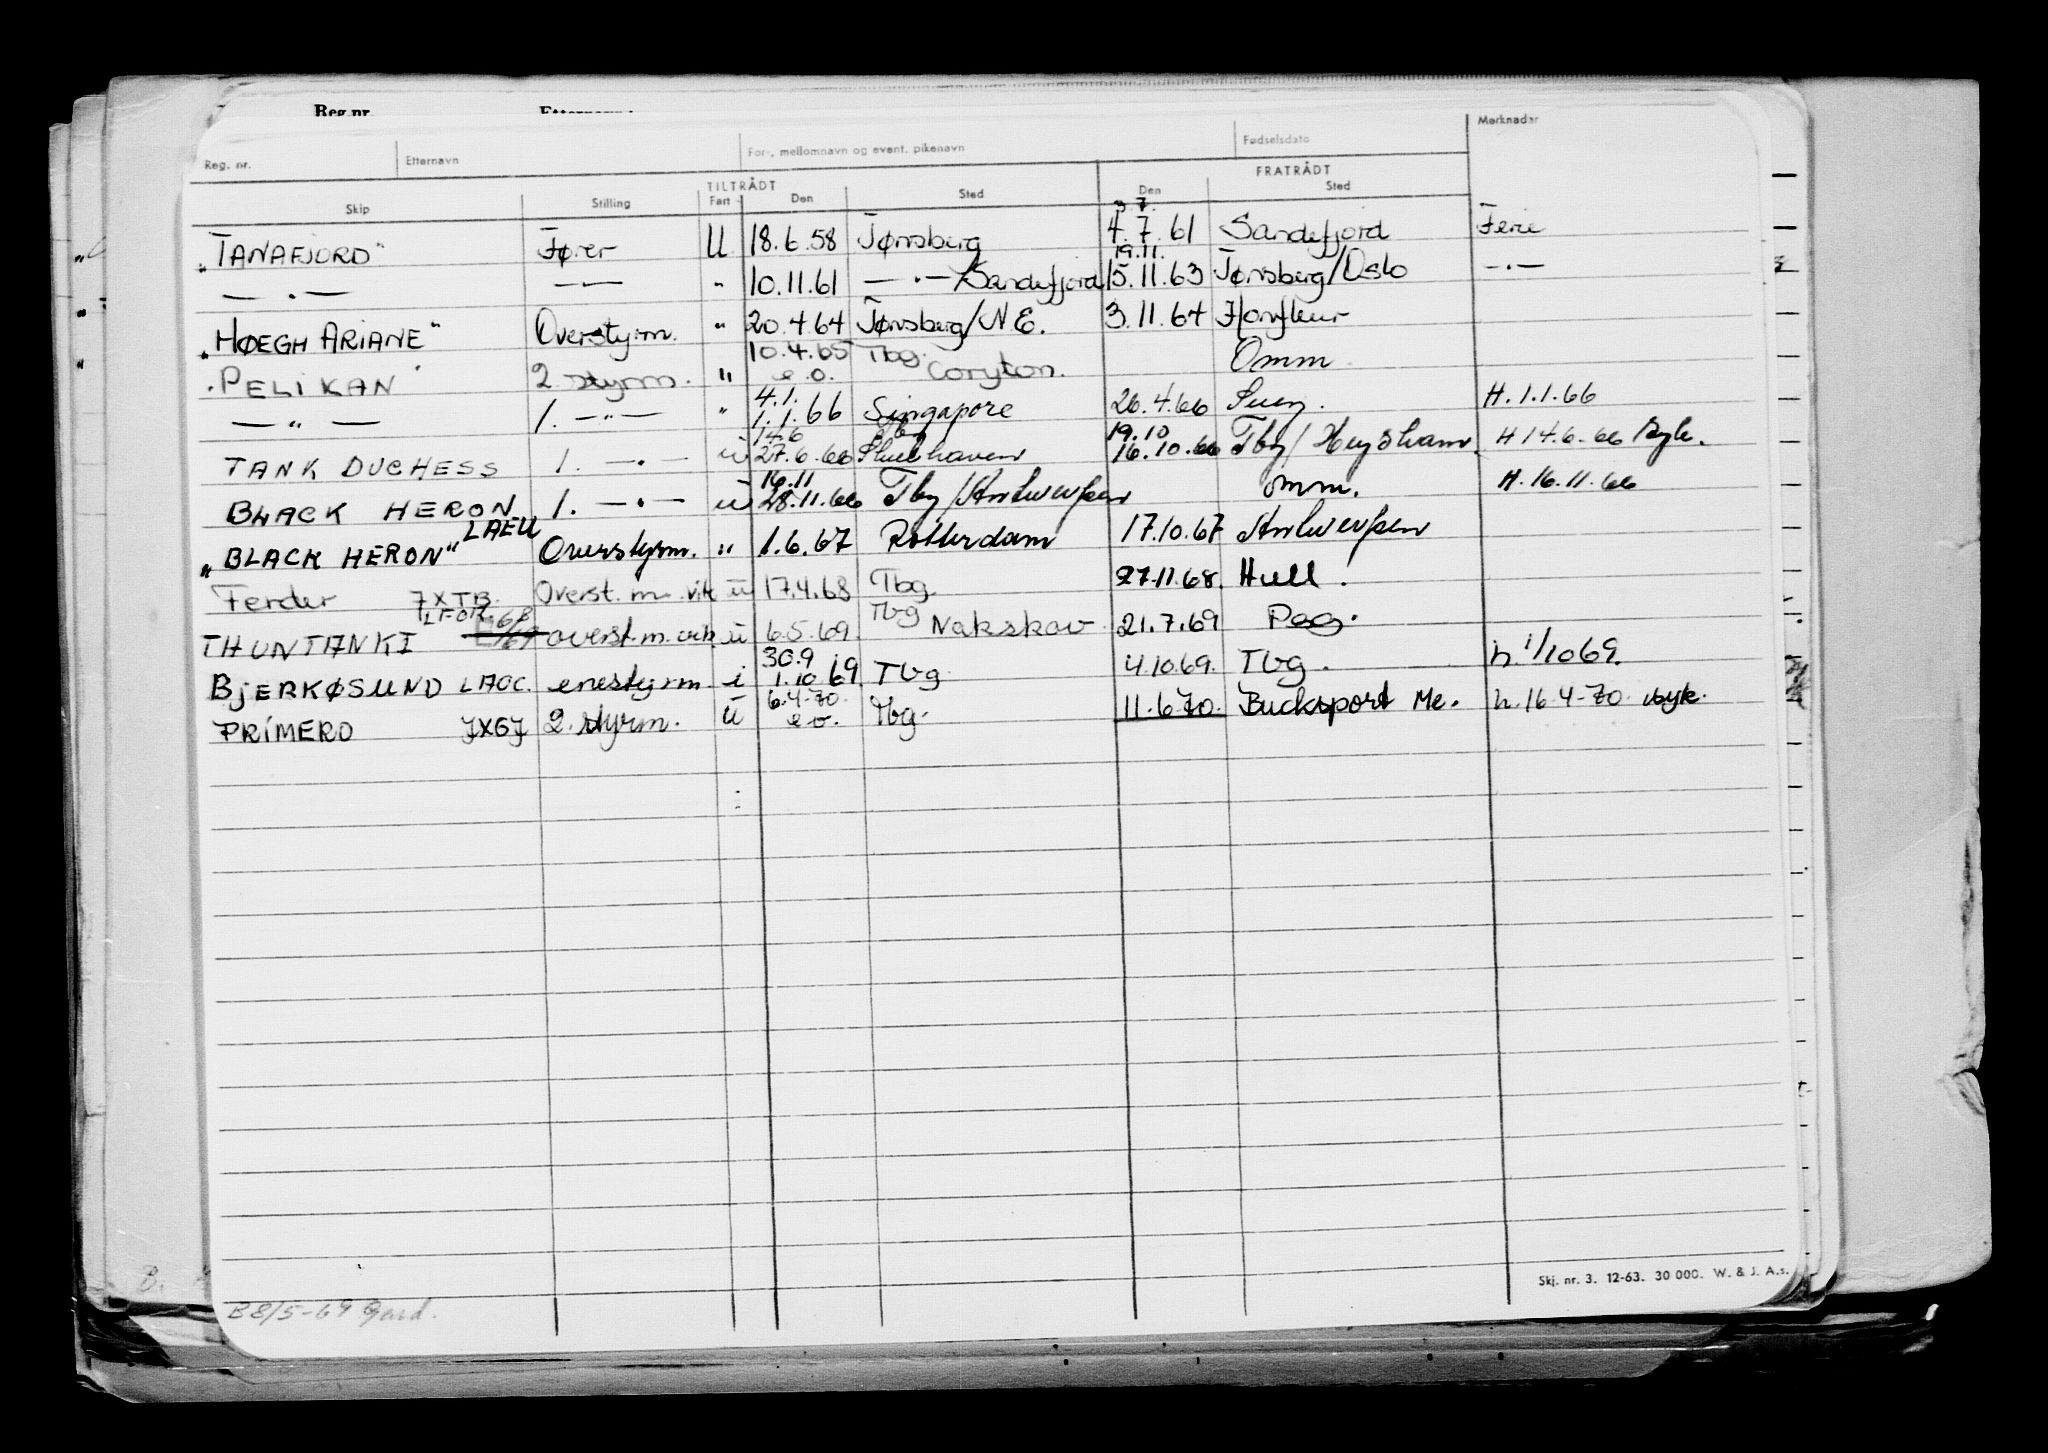 Reg. nr. Etternavn
Reg. nr. Etternavn For-, mellomnavn og event. pikenavn Fødselsdato Merknader
TILTRÅDT FRATRÅDT
Skip Stilling Fart Den Sted Den Sted
3.7.
„TANAFJORD" Fører U 18.6.58 Tønsberg 4.7.61 Sandefjord Ferie
19.11.
— . — — " — " 10.11.61 — . — Sandefjord 15.11.63 Tønsberg/Oslo — . —
„HØEGH ARIANE" Overstyrm. " 20.4.64 Tønsberg/N E. 3.11.64 Honfleur
10.4.65 Tbg.
"PELIKAN" 2. styrm. " e.o. Coryton. Omm
4.1.
— " — 1. — " — " 1.1.66 Singapore 26.4.66 Suez. H. 1.1.66
14.6 19.10
TANK DUCHESS 1. — . — u 27.6.66 Shellhaven 16.10.66 Tbg/Heysham. H 14.6-66
16.11
BLACK HERON 1. — . — u 28.11.66 Tbg/Antwerpen omm. H. 16.11.66
„BLACK HERON" LAEU Overstyrm. " 1.6.67 Rotterdam 17.10.67 Antwerpen
Ferder JXTB. Overst. m. vik u 17.4.68 Tbg. 27.11.68. Hull.
THUNTANKI overst. m. vik u 6.5.69. Tbg Nakskov 21.7.69
30.9
BJERKØSUND LAOC. enestyrm i 1.10.69. Tbg 4.10.69. Tbg. h. 1/10 69.
6.4-70.
PRIMERO JXGJ 2. styrm. u e.o. Tbg. 11.6.70. Bucksport Me. h. 16.4-70. syk.
Skj. nr. 3. 12-63. 30 000. W. & J. A.s.
B 8/5-69